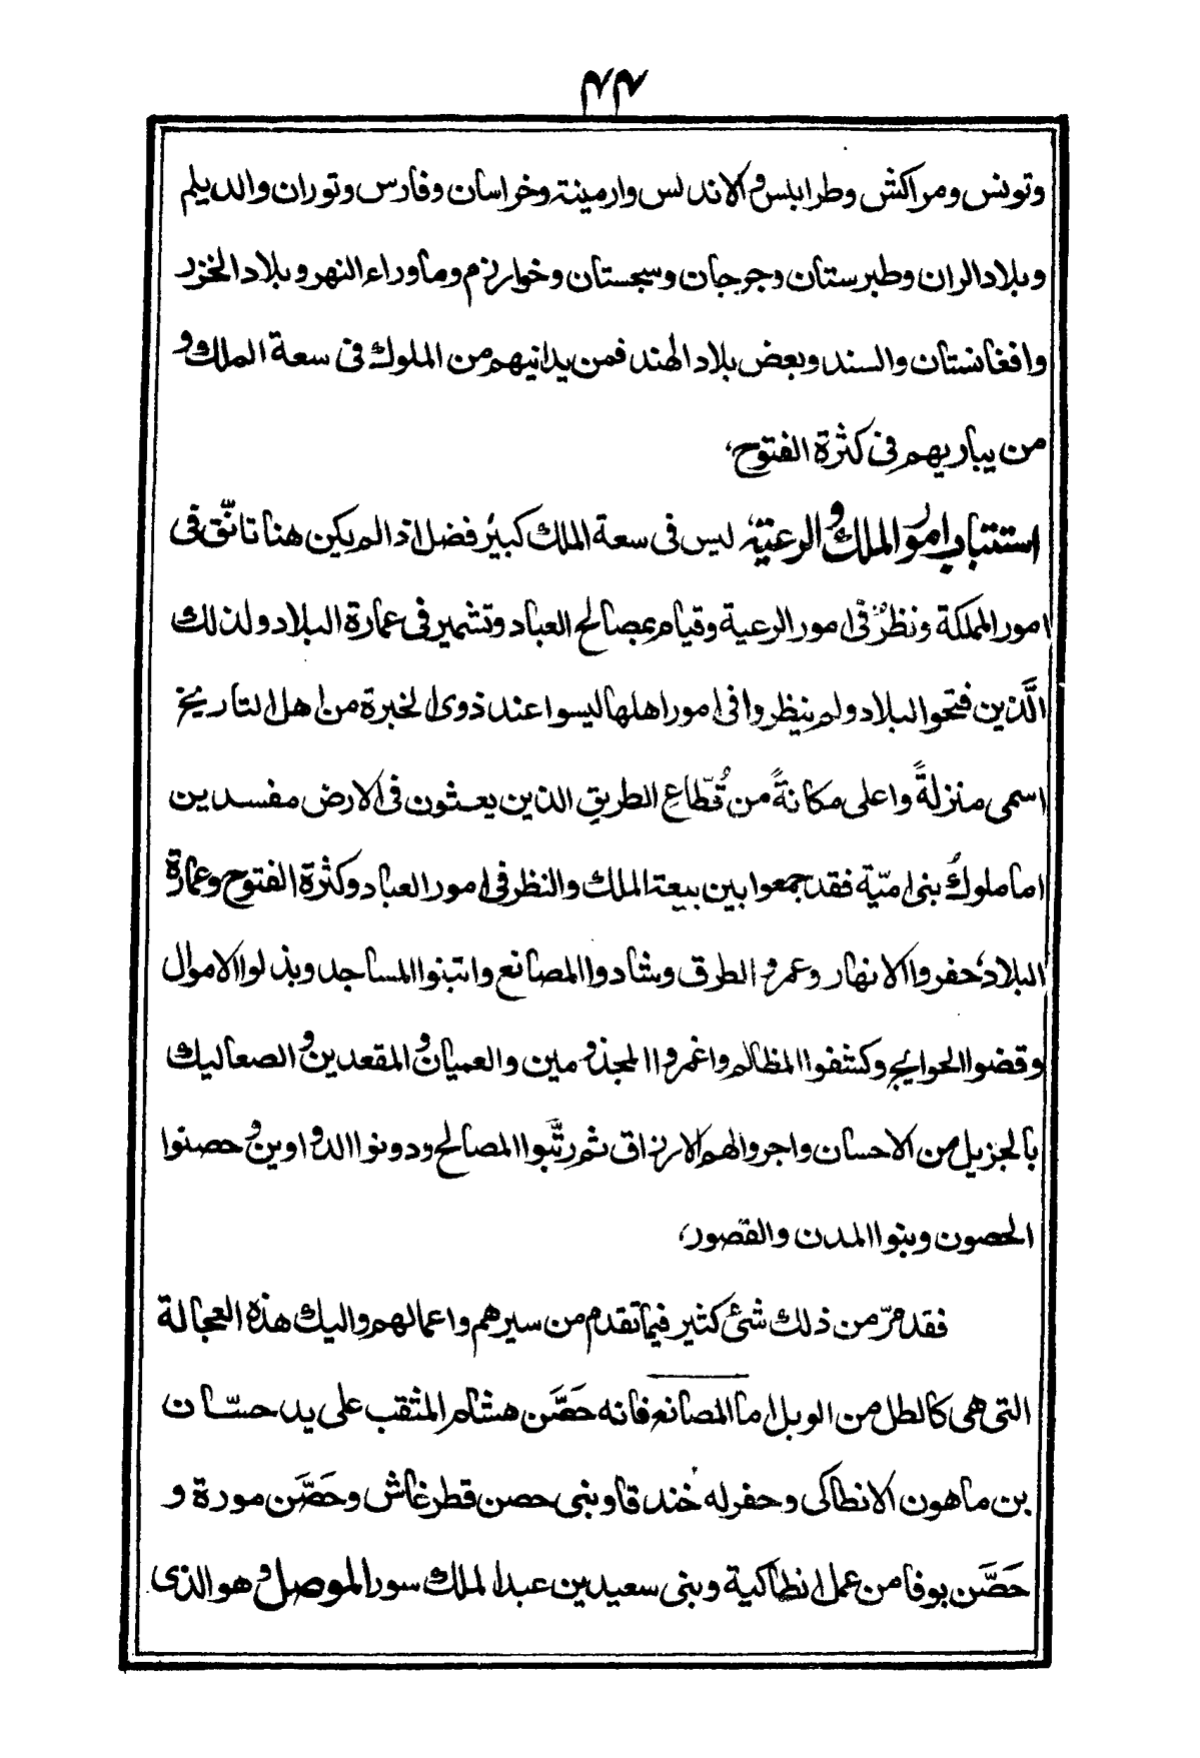 ٤٤
وتونس ومراكش وطرابلس والاندلس وارمينة وخراسان وفارس وتوران والديلم
وبلاد الران وطبرستان وجرجان وسجستان وخوارزم وماوراء النهر وبلاد الخزر
وافغانستان والسند وبعض بلاد الهند فمن يدانيهم من الملوك فى سعة الملك و
من يباريهم فى كثرة الفتوح،
استتباب امور الملك والرعية، ليس فى سعة الملك كبيرُ فضل اذا لم يكن هنا تانّق فى
امور المملكة ونظرٌ فى امور الرعية وقيام بمصالح العباد وتشمير فى عمارة البلاد ولذلك
الَّذين فتحوا البلاد ولم ينظروا فى امور اهلها ليسوا عند ذوى الخبرة من اهل التاريخ
اسمى منزلةً واعلى مكانةً من قُطّاعِ الطريق الذين يعثون فى الارض مفسدين
اما ملوكُ بنى اميّة فقد جمعوا بين بيعة الملك والنظر فى امور العباد وكثرة الفتوح وعمارة
البلاد، حفروا الانهار وعمروا الطرق وشادوا المصانع وابتنوا المساجد وبذلوا الاموال
وقضوا الحوايج وكشفوا المظالم واغمروا المجذومين والعميان والمقعدين والصعاليك
بالجزيل من الاحسان واجروا لهم الارزاق ثم رتَّبوا المصالح ودونوا الدواوين وحصنوا
الحصون وبنوا المدن والقصور،
فقد مرّ من ذلك شئ كثير فيما تقدم من سيرهم واعمالهم واليك هذه العجالة
التى هى كالطل من الوبل اما المصانع فانه حَصَّن هشام المثقب على يد حسّان
بن ماهون الانطاكى وحفر له خندقا وبنى حصن قطرغاش وحَصَّن مورة و
حَصَّن بوقا من عمل انطاكية وبنى سعيد بن عبد الملك سور الموصل وهو الذى